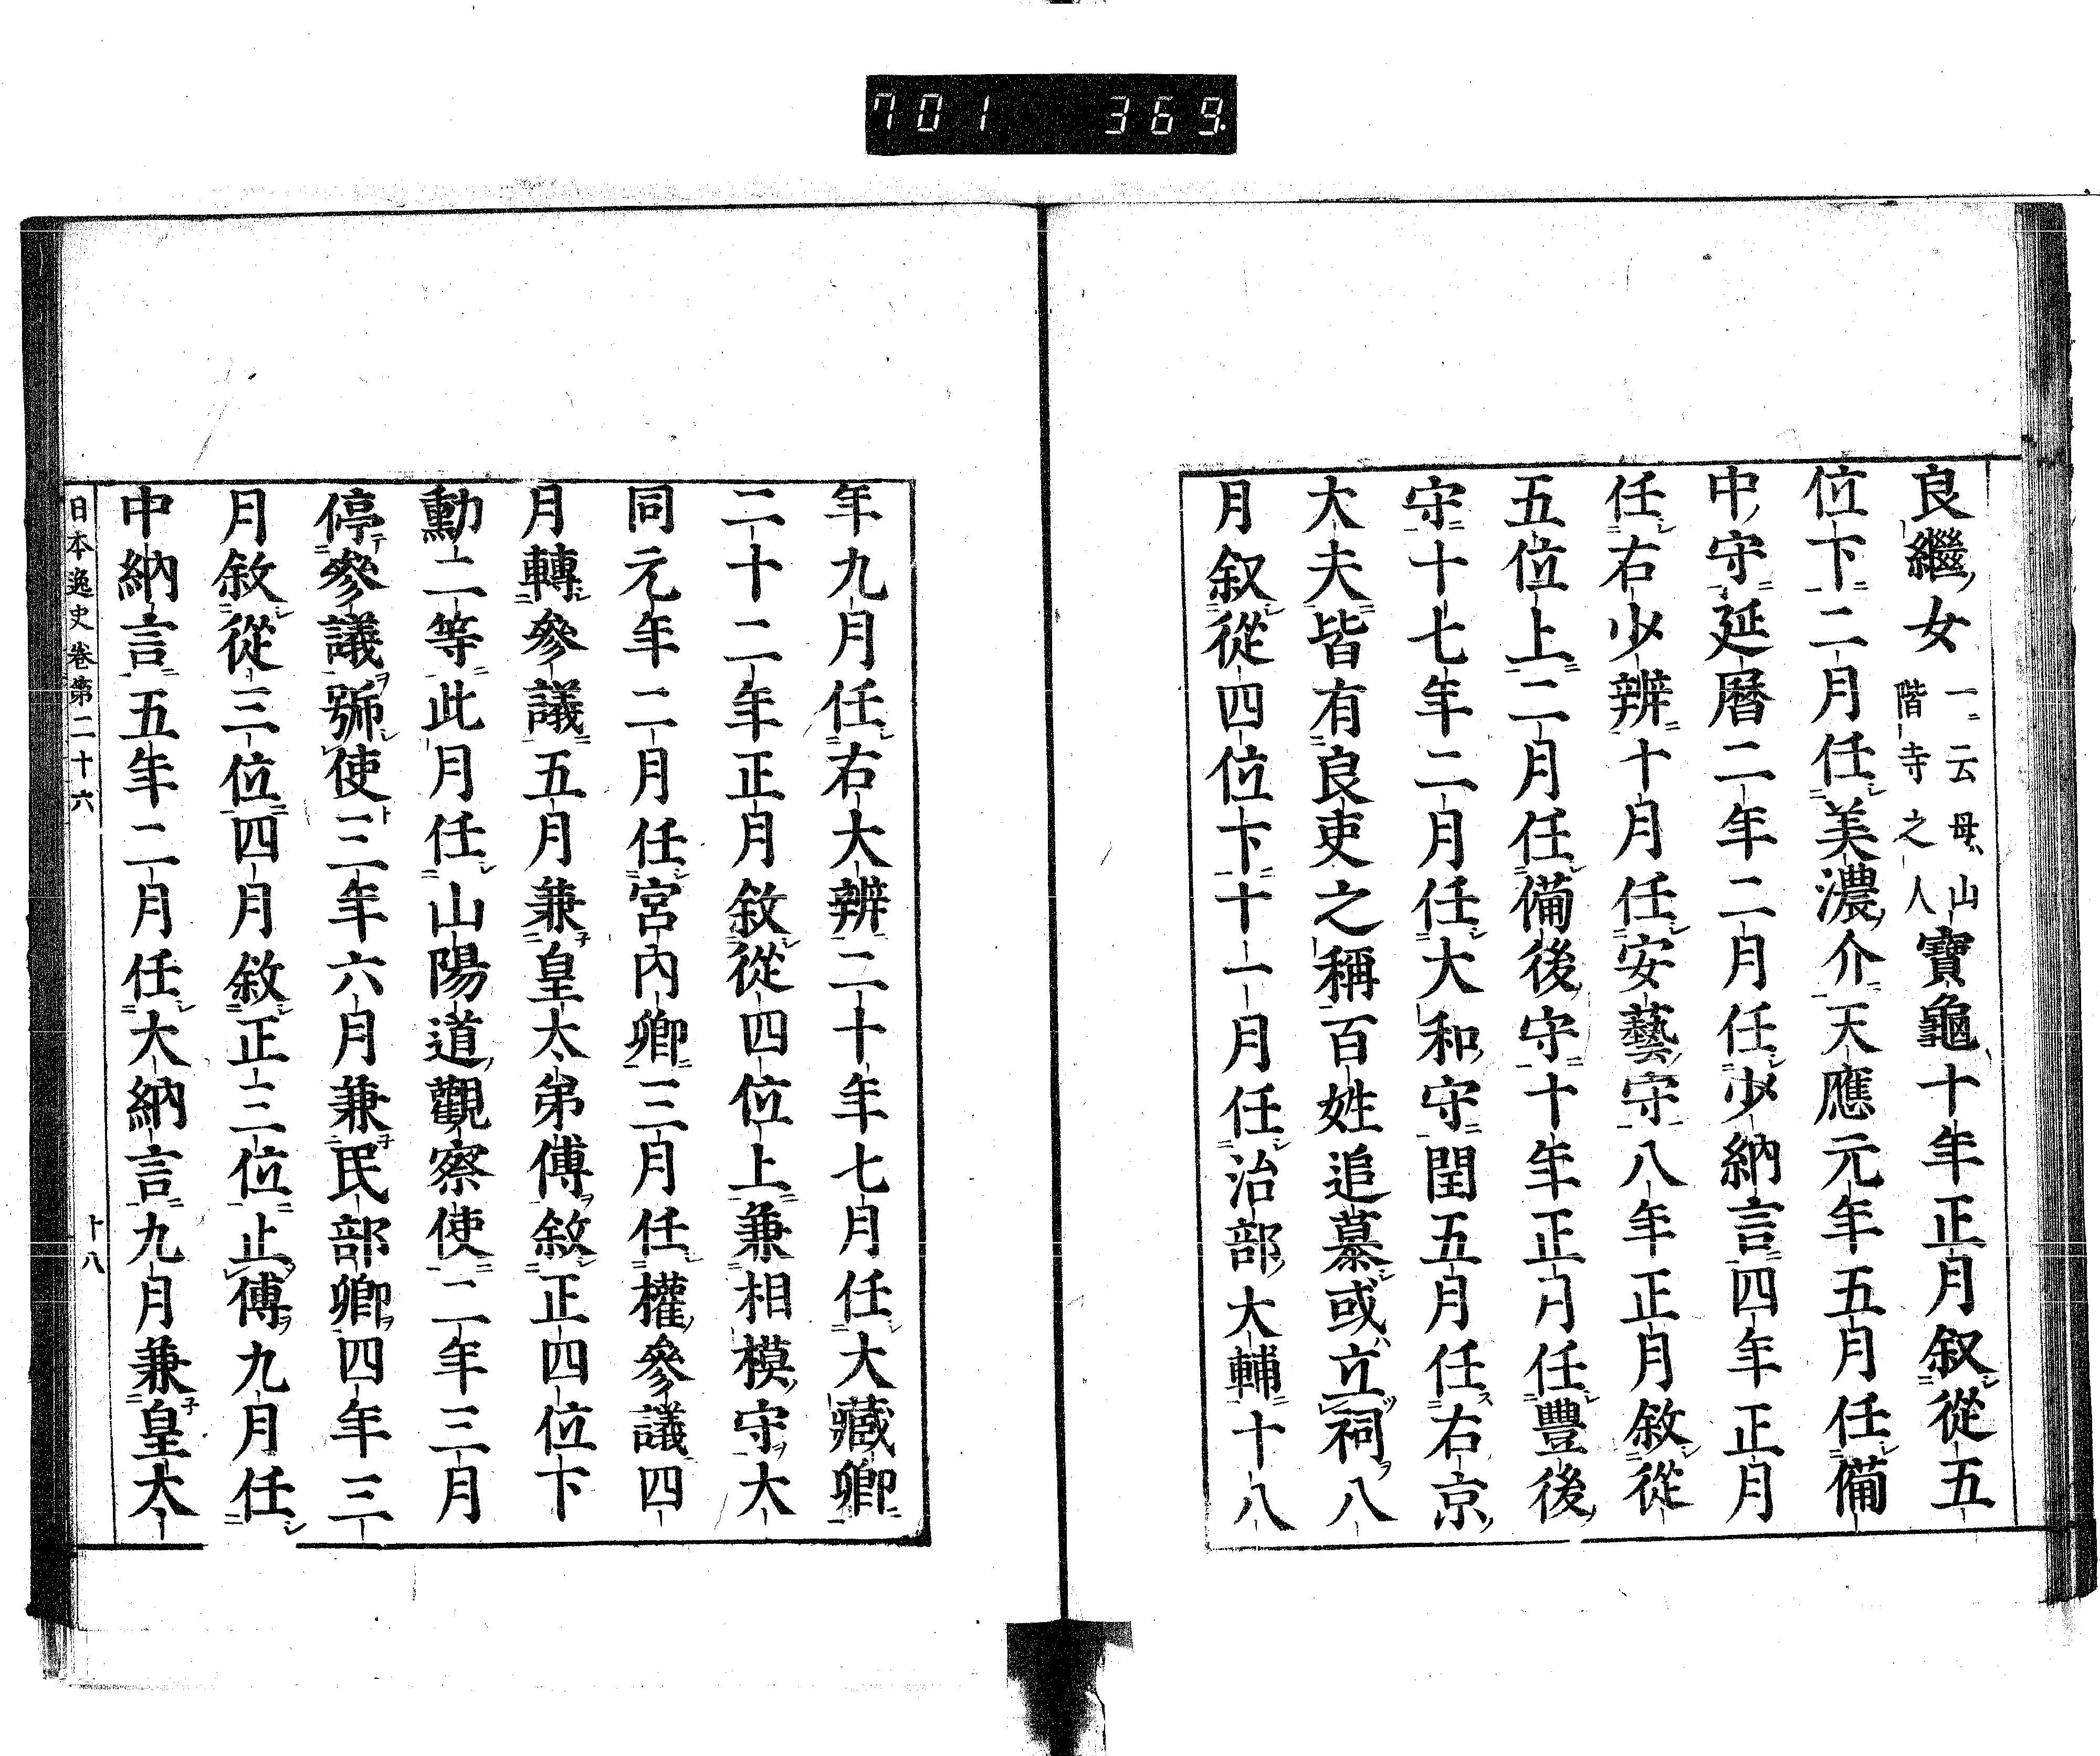 701 369
良繼女一云母山階寺之人寶龜十年正月叙從五
位下二月任美濃介天應元年五月任備
中守延曆二年二月任少納言四年正月
任右少辨十月任安藝守八年正月敘從
五位上二月任備後守十年正月任豐後
守十七年二月任大和守閏五月任右京
大夫皆有良吏之稱百姓追慕或立祠八
月叙從四位下十一月任治部大輔十八
年九月任右大辨二十年七月任大藏卿
二十二年正月敘從四位上兼相模守大
同元年二月任宮內卿三月任權參議四
月轉參議五月兼皇太弟傅敘正四位下
勳二等此月任山陽道觀察使二年三月
停參議號使三年六月兼民部卿四年三
月敘從三位四月敘正三位止傅九月任
中納言五年二月任大納言九月兼皇太
日本逸史卷第二十六 十八